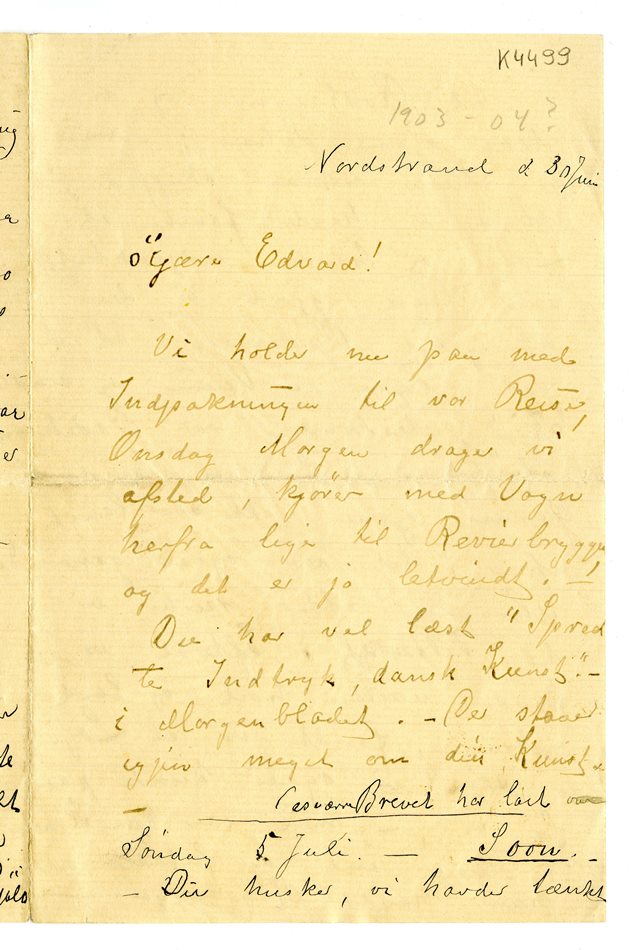 K4499
1903-04?
Nordstrand d 30 Juni
Kjære Edvard!
Vi holder nu paa med
Indpakningen til vor Reise,
Onsdag Morgen drager vi
afsted, kjører med Vogn
herfra lige til Revierbryggen
og det er jo letvindt. –!
Du har vel læst "Spred
te Indtryk, dansk Kunst." –
i Morgenbladet. – Der staaer
igjen meget om din Kunst.
– Brevet har lagt
Søndag 5 Juli. – Soon. –
– Du husker, vi havde tænkt